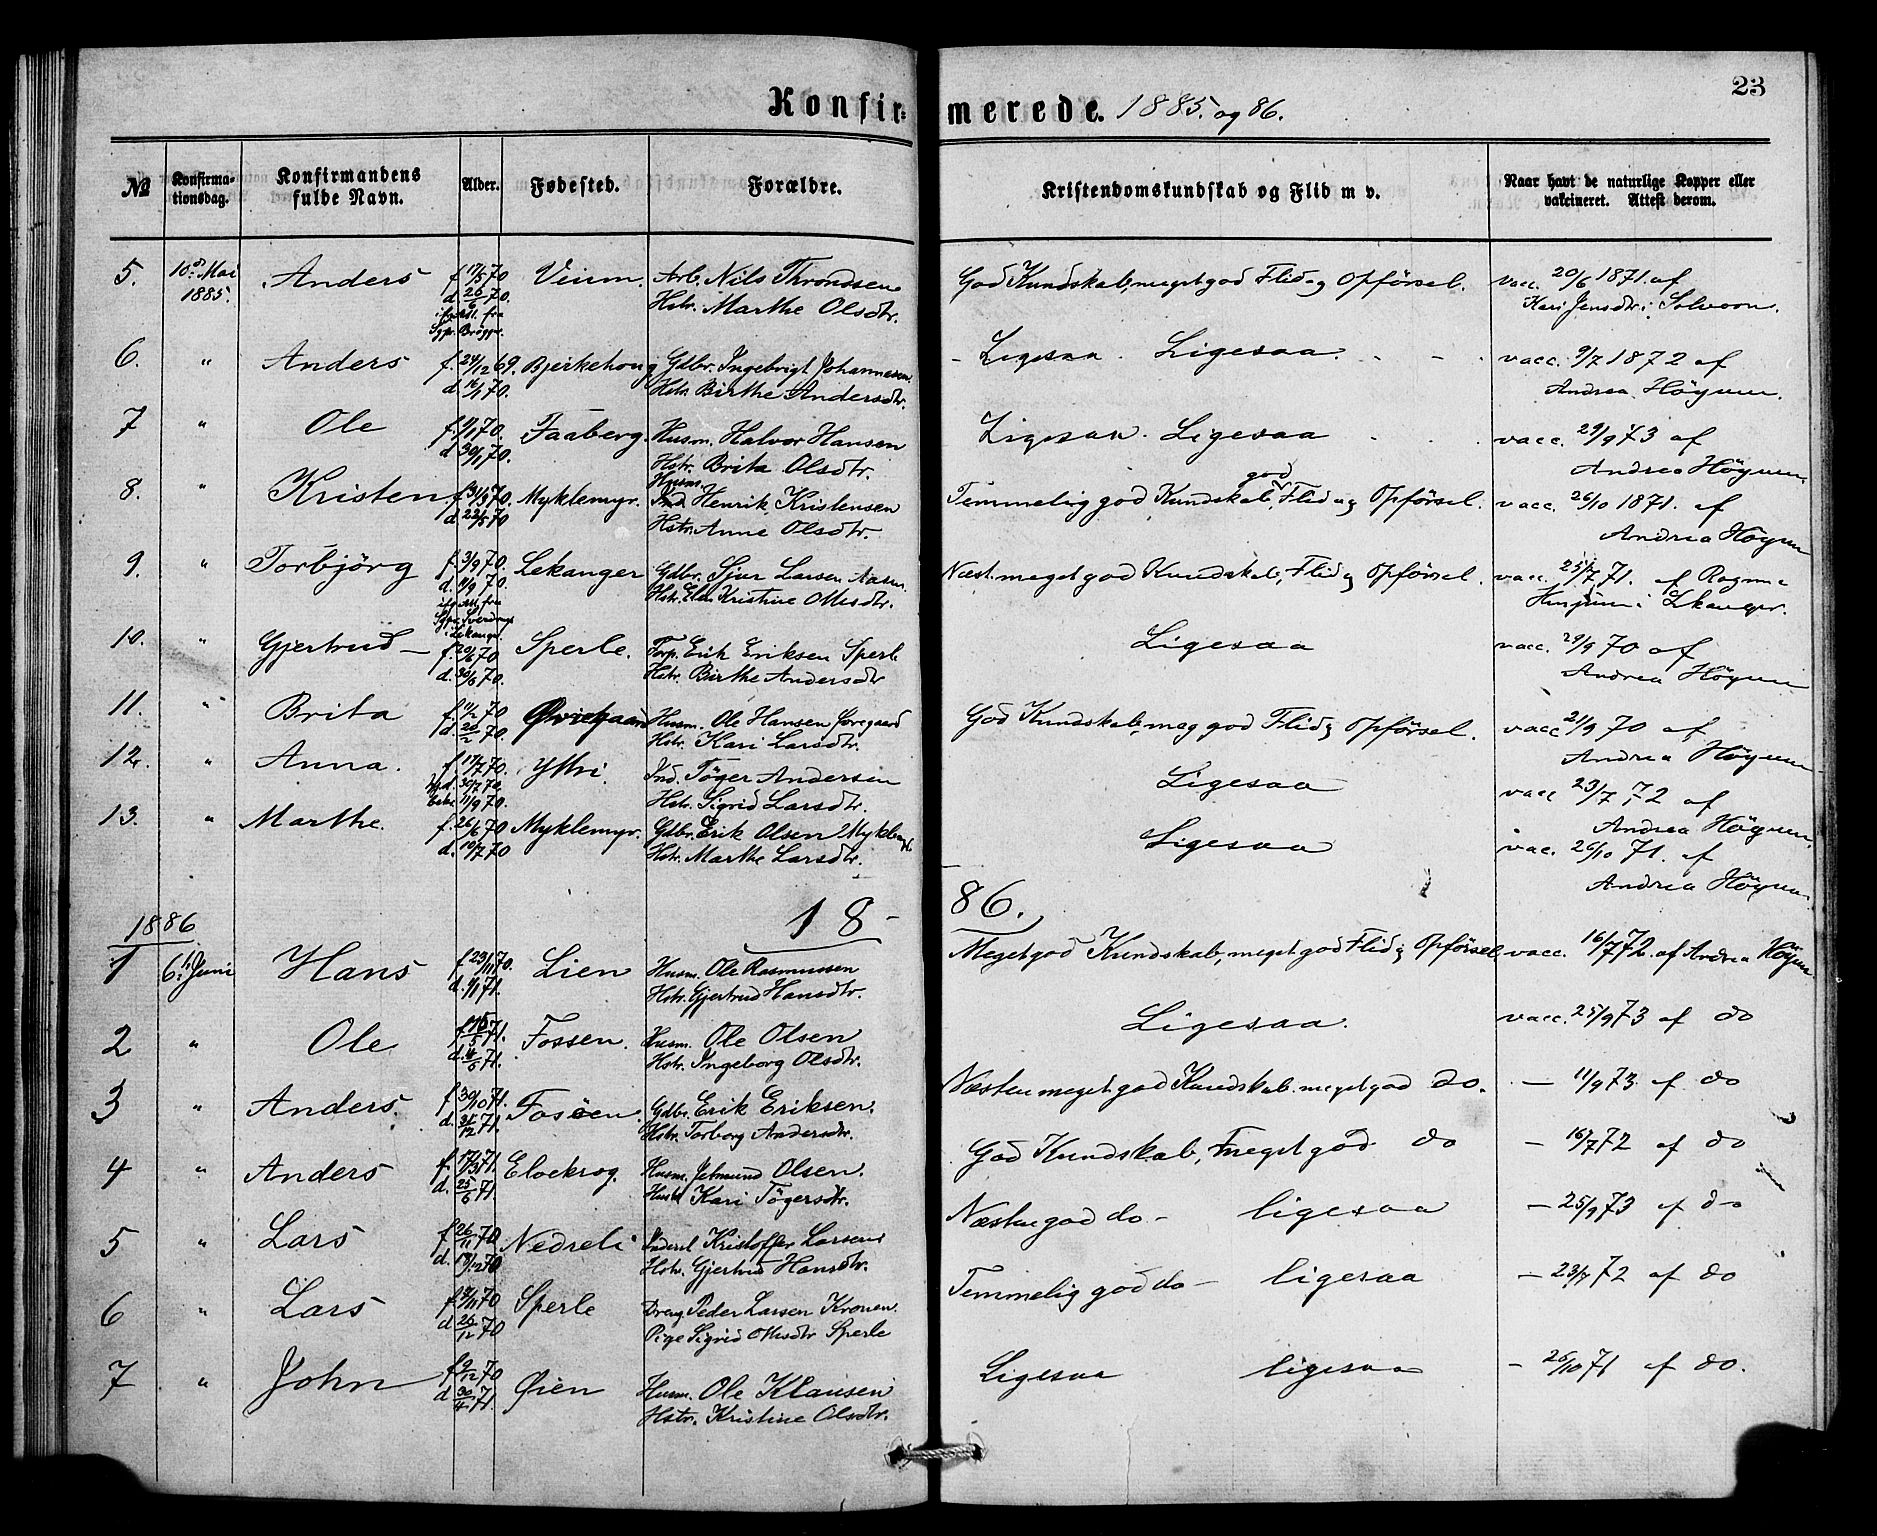 23
Konfirmerede. 1885. og 86.
№ Konfirmationsdag. Konfirmandens fulde Navn. Alder. Fødested. Forældre. Kristendomskundskab og Flid m v. Naar havt de naturlige Kopper eller vakcineret. Attest derom.
5. 10de Mai 1885. Anders f. 17/5 70 Veium. Arb. Nils Throndsen God Kundskab, meget god Flid og Opførsel. vacc. 20/6 1871. af
d. 26/6 70. Hstr. Marthe Olsdtr. Kari Jensdtr. i Solvorn.
fra
Sgpr.
6. " Anders f. 24/12 69. Bjerkehoug Gdbr. Ingebrigt Johannesen - Ligesaa. Ligesaa. vacc. 9/7 1872 af
d. 16/1 70. Hstr. Birthe Andersdtr. Andrea Höyum.
7 " Ole 70. Faaberg. Husm. Halvor Hansen Ligesaa. Ligesaa vacc. 29/9 73 af
d 30/1 70. Hstr. Brita Olsdtr. Andrea Höyum.
8. " Kristen f. 31/3 70. Myklemyr. Husm. Henrik Kristensen Temmelig god Kundskab, god Flid og Opførsel. vacc. 26/10 1871. af
d. 22/5 70 Hstr. Anne Olsdtr. Andrea Höyum
9. " Torbjörg f. 3/9 70. Lekanger Gdbr. Sjur Larsen Næst. meget god Kundskab, Flid og Opførsel. vacc. 25/7 71. af
d. 11/9 70. Hstr. Kristine Olsdtr. Husjum i Lekanger.
10. " Gjertrud f. 70 Sperle. Forp. Erik Eriksen Sperle Ligesaa vacc. 29/9 70 af
d. 30/6 70. Hstr. Birthe Andersdtr Andrea Höyum
11. " Brita f. 11/2 70 Husm. Ole Hansen God Kundskab, meg god Flid og Opførsel. vacc 21/9 70 af
d. 20/2 70. Hstr. Kari Larsdtr. Andrea Höyum
12. " Anna. f. 17/7 70. Yttri. Ind. Töger Andersen Ligesaa vacc 23/7 72 af
11/9 70. Hstr. Sigrid Larsdtr. Andrea Höyum.
13. " Marthe. f. 26/6 70 Myklemyr. Gdbr. Erik Olsen Myklemyr. Ligesaa vacc. 26/10 71. af
d. 10/7 70 Hstr. Marthe Larsdtr. Andrea Höyum.
1886 18-86.
1 6te Juni Hans f. 23/11 70. Lien Husm. Ole Rasmussen Meget god Kundskab, meget god Flid og Opførsel vacc. 16/7 72. af Andrea Höyum
d. 71. Hstr. Gjertrud Hansdtr.
2 " Ole 71. Fossen. Husm. Ole Olsen Ligesaa. vacc. 25/9 73 af do
71. Hstr. Ingeborg Olsdtr.
3 " Anders. f. 30/10 71. Fossen. Gdbr. Erik Eriksen. Næsten meget god Kundskab. meget god do. - 11/9 73. af do
d. 31/12 71. Hstr. Torborg Andersdtr.
4 " Anders f. 17/3 71. Elvekrog. Husm. Jetmund Olsen. God Kundskab, meget god do - 16/7 72 af do
d. 25/6 71. Hustr Kari Tögersdtr.
5 " Lars f. 26/11 70 Nedreli Inderst Kristoffer Larsen Næsten god do - ligesaa - 25/9 73 af do
d. 19/12 70 Hstr. Gjertrud Hansdtr.
6 " Lars 70 Sperle Dreng Peder Larsen Kronen Temmelig god do - ligesaa - 23/7 72 af do
d 26/12 70 Pige Sigrid Olsdtr Sperle
7 " John f. 9/12 70 Øien Husm. Ole Klausen Ligesaa ligesaa - 26/10 71 af do.
d 30/4 71. Hstr. Kristine Olsdtr.